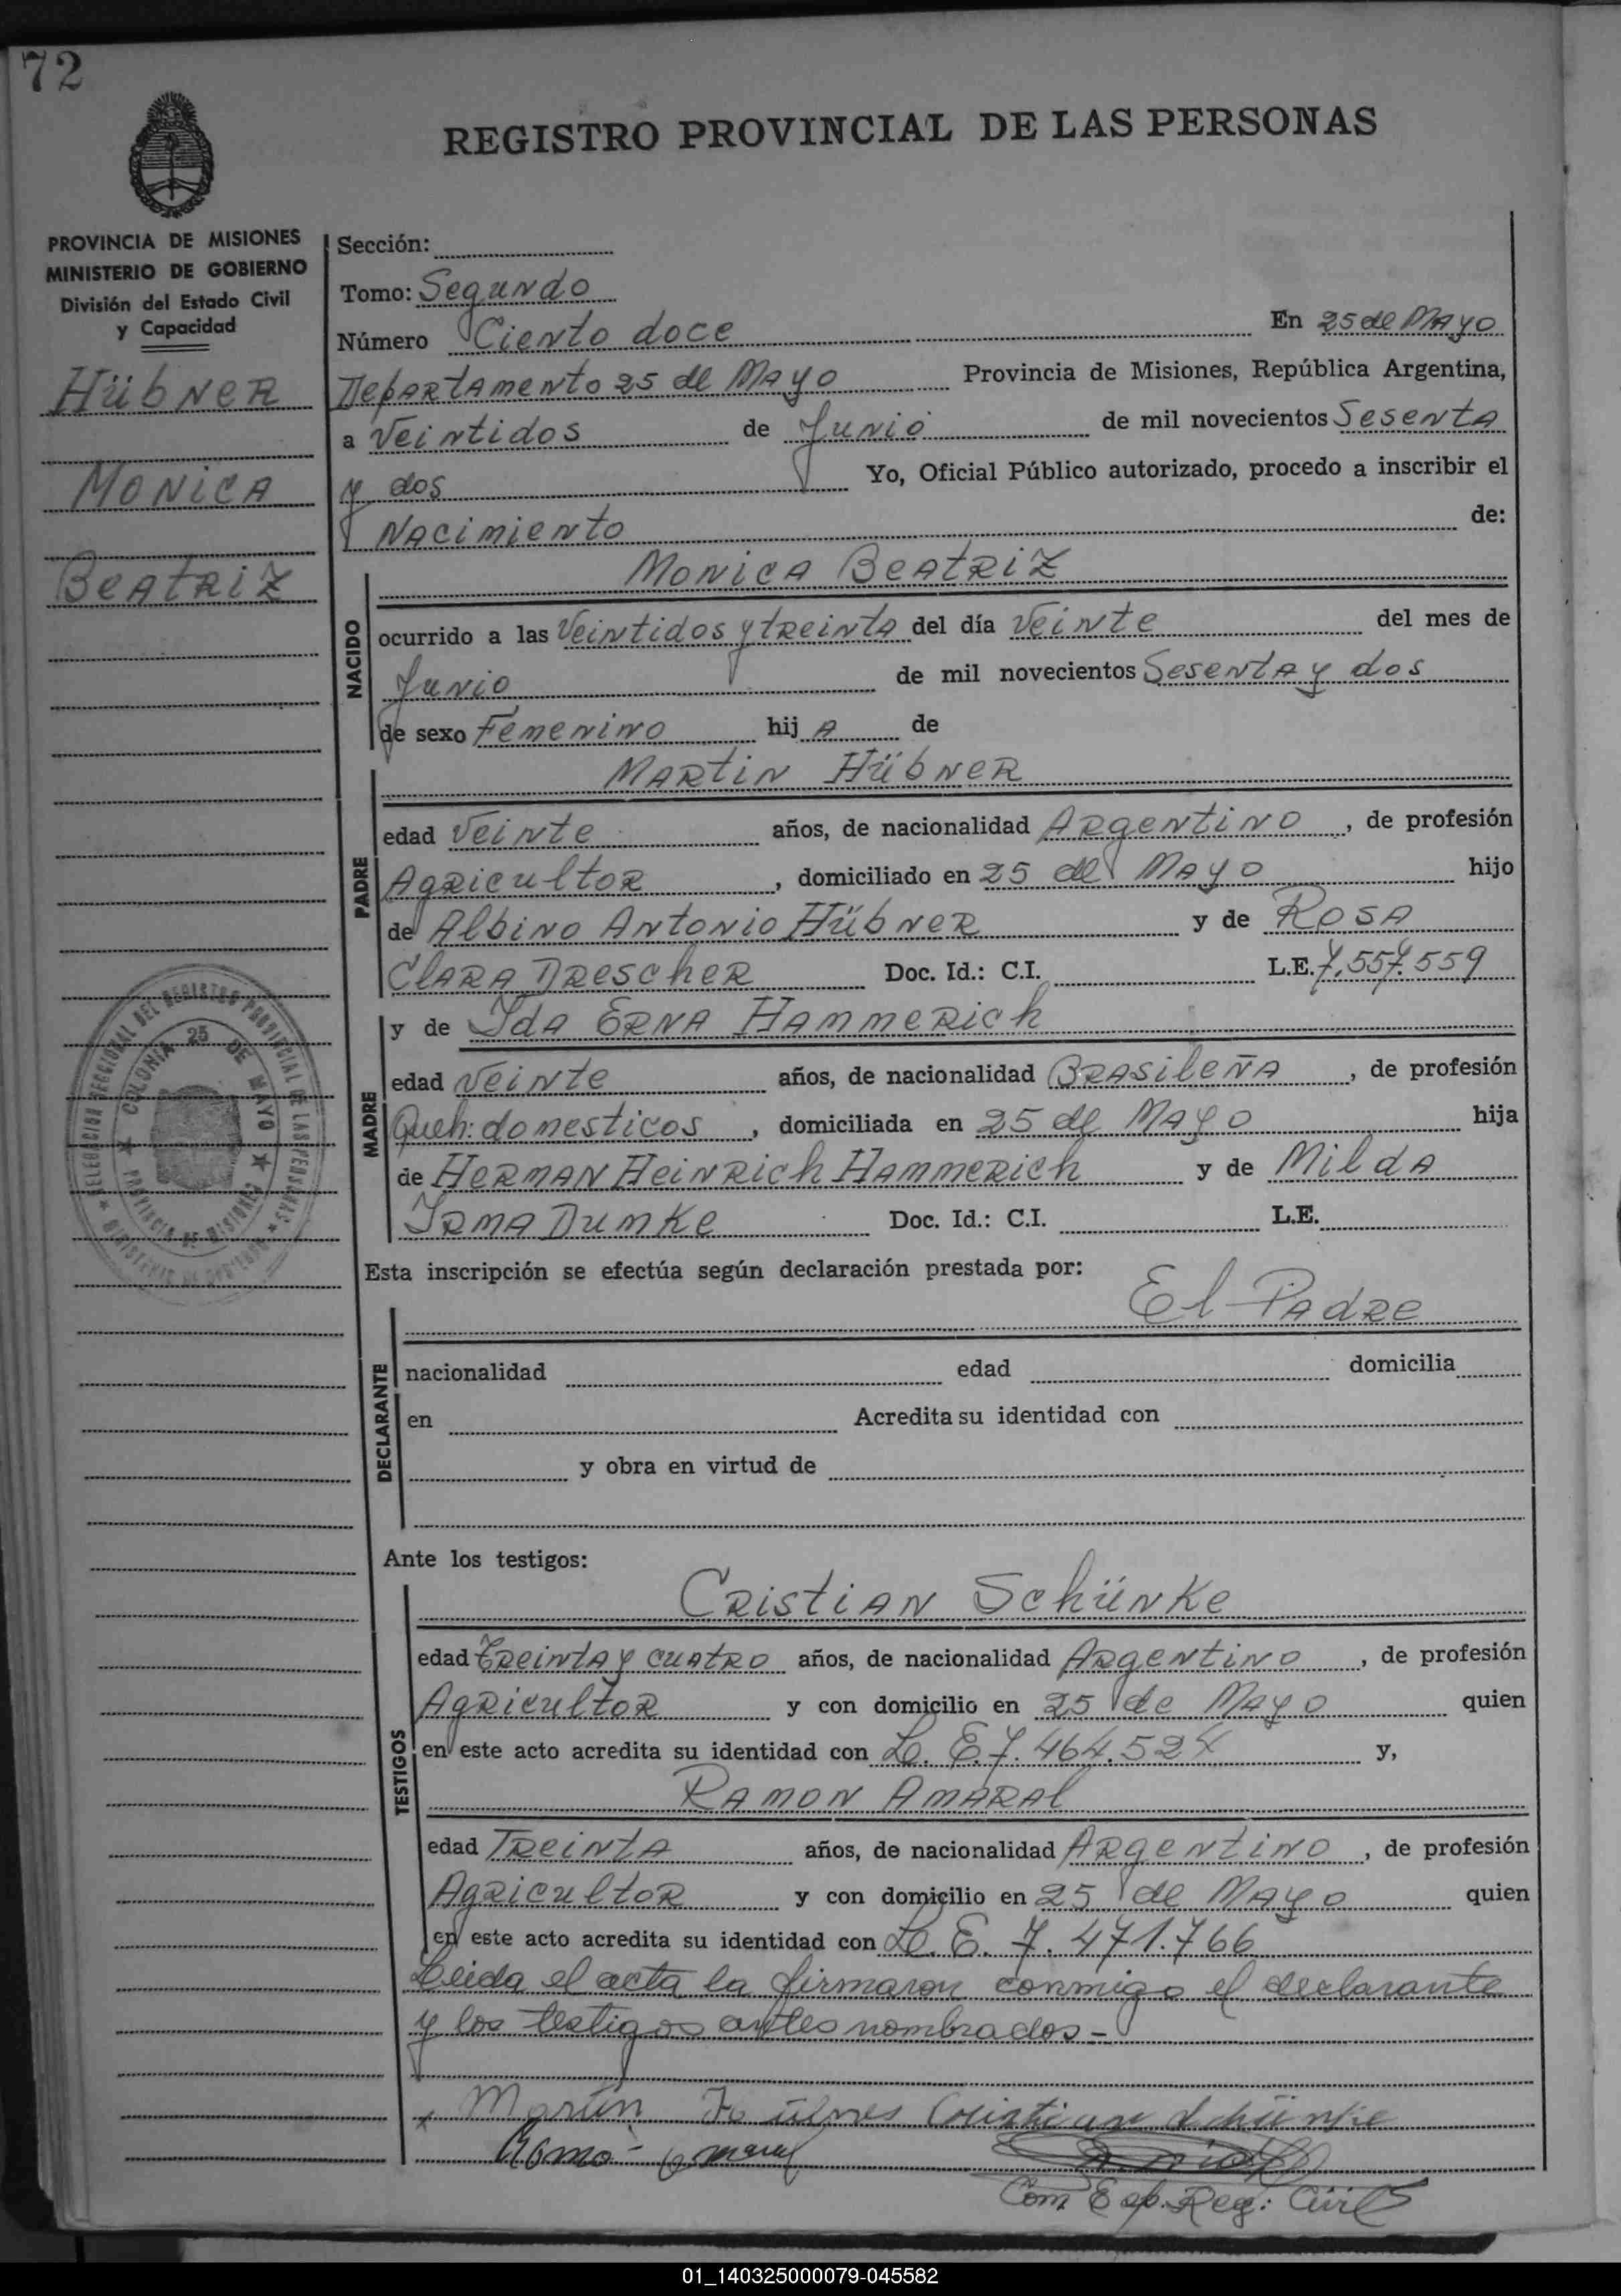 72
REGISTRO PROVINCIAL DE LAS PERSONAS
PROVINCIA DE MISIONES
MINISTERIO DE GOBIERNO
División del Estado Civil
y Capacidad
Hübner
Monica
Beatriz
Sección:
Tomo: Segundo
Número Ciento doce En 25 de Mayo
Departamento 25 de Mayo Provincia de Misiones, República Argentina,
a Veintidos de Junio de mil novecientos Sesenta
y dos Yo, Oficial Público autorizado, procedo a inscribir el
Nacimiento de:
Monica Beatriz
NACIDO
ocurrido a las Veintidos y treinta del día Veinte del mes de
Junio de mil novecientos Sesenta y dos
de sexo Femenino hij a de
Martin Hübner
PADRE
edad Veinte años, de nacionalidad Argentino, de profesión
Agricultor, domiciliado en 25 de Mayo hijo
de Albino Antonio Hübner y de Rosa
Clara Drescher Doc. Id.: C.I. L.E. 7.557.559
y de Ida Erna Hammerich
MADRE
edad Veinte años, de nacionalidad Brasileña, de profesión
Queh: domesticos, domiciliada en 25 de Mayo hija
de Herman Heinrich Hammerich y de Milda
Irma Dumke Doc. Id.: C.I. L.E.
DELEGACION SECCIONAL DEL REGISTRO PROVINCIAL DE LAS PERSONAS
COLONIA 25 DE MAYO
PROVINCIA DE MISIONES
Esta inscripción se efectúa según declaración prestada por:
El Padre
DECLARANTE
nacionalidad edad domicilia
en Acredita su identidad con
y obra en virtud de
Ante los testigos:
Cristian Schünke
TESTIGOS
edad Treinta y cuatro años, de nacionalidad Argentino, de profesión
Agricultor y con domicilio en 25 de Mayo quien
en este acto acredita su identidad con L. E. 7. 464. y,
Ramon Amaral
edad Treinta años, de nacionalidad Argentino, de profesión
Agricultor y con domicilio en 25 de Mayo quien
en este acto acredita su identidad con L. E. 7. 471.766
Leida el acta la firmaron conmigo el declarante
y los testigos antes nombrados -
Martin Cristian Schünke
Com. Reg: Civil
01_140325000079-045582